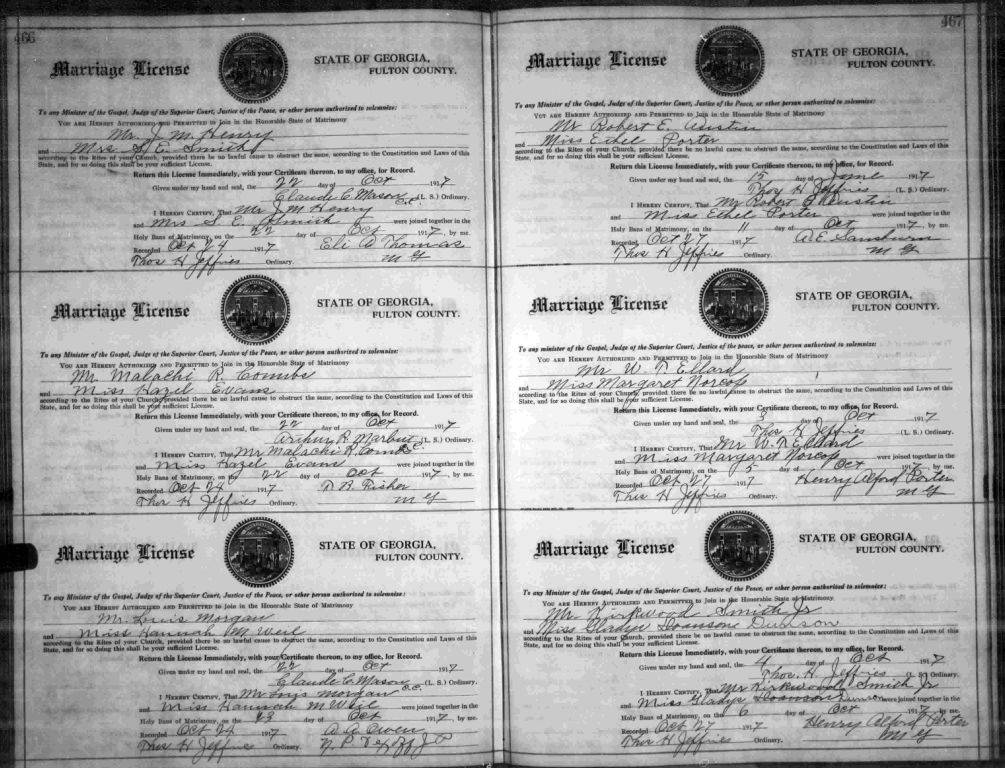 466
Marriage License
STATE OF GEORGIA,
FULTON COUNTY.
To any Minister of the Gospel, Judge of the Superior Court, Justice of the Peace, or other person authorized to solemnize:
YOU ARE HEREBY AUTHORIZED AND PERMITTED to Join in the Honorable State of Matrimony
Mr. J. M. Henry
and Mrs S. E. Smith
according to the Rites of your Church, provided there be no lawful cause to obstruct the same, according to the Constitution and Laws of this
State, and for so doing this shall be your sufficient License.
Return this License Immediately, with your Certificate thereon, to my office, for Record.
Given under my hand and seal, the 22 day of Oct 1917
Claude C. Mason C.C. (L. S.) Ordinary.
I HEREBY CERTIFY, That Mr J. M. Henry
and Mrs S. E. Smith were joined together in the
Holy Bans of Matrimony, on the 22 day of Oct 1917, by me.
Recorded Oct 24 1917 Eli D Thomas
Thos H Jeffries Ordinary. M G
Marriage License
STATE OF GEORGIA,
FULTON COUNTY.
To any Minister of the Gospel, Judge of the Superior Court, Justice of the Peace, or other person authorized to solemnize:
YOU ARE HEREBY AUTHORIZED AND PERMITTED to Join in the Honorable State of Matrimony
Mr. Malachi R. Combs
and Miss Hazel Evans
according to the Rites of your Church, provided there be no lawful cause to obstruct the same, according to the Constitution and Laws of this
State, and for so doing this shall be your sufficient License.
Return this License Immediately, with your Certificate thereon, to my office, for Record.
Given under my hand and seal, the 22 day of Oct 1917
Arthur R. Marbut C.C. (L. S.) Ordinary.
I HEREBY CERTIFY, That Mr Malachi R. Combs
and Miss Hazel Evans were joined together in the
Holy Bans of Matrimony, on the 22 day of Oct 1917, by me.
Recorded Oct 24 1917 Fisher
Thos H Jeffries Ordinary. M G
Marriage License
STATE OF GEORGIA,
FULTON COUNTY.
To any Minister of the Gospel, Judge of the Superior Court, Justice of the Peace, or other person authorized to solemnize:
YOU ARE HEREBY AUTHORIZED AND PERMITTED to Join in the Honorable State of Matrimony
Mr. Louis Morgan
and Miss Hannah M Weil
according to the Rites of your Church, provided there be no lawful cause to obstruct the same, according to the Constitution and Laws of this
State, and for so doing this shall be your sufficient License.
Return this License Immediately, with your Certificate thereon, to my office, for Record.
Given under my hand and seal, the 22 day of Oct 1917
Claude C. Mason C.C. (L. S.) Ordinary.
I HEREBY CERTIFY, That Mr Louis Morgan
and Miss Hannah M Weil were joined together in the
Holy Bans of Matrimony, on the 23 day of Oct 1917, by me.
Recorded Oct 24 1917 Owen
Thos H Jeffries Ordinary. N. P.
467
Marriage License
STATE OF GEORGIA,
FULTON COUNTY.
To any Minister of the Gospel, Judge of the Superior Court, Justice of the Peace, or other person authorized to solemnize:
YOU ARE HEREBY AUTHORIZED AND PERMITTED to Join in the Honorable State of Matrimony
Mr Robert E. Austin
and Miss Ethel Porter
according to the Rites of your Church, provided there be no lawful cause to obstruct the same, according to the Constitution and Laws of this
State, and for so doing this shall be your sufficient License.
Return this License Immediately, with your Certificate thereon, to my office, for Record.
Given under my hand and seal, the 15 day of June 1917
Thos H Jeffries (L. S.) Ordinary.
I HEREBY CERTIFY, That Mr Robert E Austin
and Miss Ethel Porter were joined together in the
Holy Bans of Matrimony, on the 11 day of Oct 1917, by me.
Recorded Oct 27 1917 A. E. Sansburn
Thos H Jeffries Ordinary. M G
Marriage License
STATE OF GEORGIA,
FULTON COUNTY.
To any minister of the Gospel, Judge of the Superior Court, Justice of the peace, or other person authorized to solemnize:
YOU ARE HEREBY AUTHORIZED AND PERMITTED to Join in the Honorable State of Matrimony
Mr W. T Ellard
and Miss Margaret Norcop
according to the Rites of your Church, provided there be no lawful cause to obstruct the same, according to the Constitution and Laws of this
State, and for so doing this shall be your sufficient License.
Return this License Immediately, with your Certificate thereon, to my office, for Record.
Given under my hand and seal, the 3 day of Oct 1917
Thos H Jeffries (L. S.) Ordinary.
I HEREBY CERTIFY, That Mr W. T Ellard
and Miss Margaret Norcop were joined together in the
Holy Bans of Matrimony, on the 5 day of Oct 1917, by me.
Recorded Oct 27 1917 Henry Alford Porter
Thos H Jeffries Ordinary. M G
Marriage License
STATE OF GEORGIA,
FULTON COUNTY.
To any Minister of the Gospel, Judge of the Superior Court, Justice of the Peace, or other person authorized to solemnize:
YOU ARE HEREBY AUTHORIZED AND PERMITTED to Join in the Honorable State of Matrimony
Mr Kirkwood Smith Jr
and Miss Gladys Dunson
according to the Rites of your Church, provided there be no lawful cause to obstruct the same, according to the Constitution and Laws of this
State, and for so doing this shall be your sufficient License.
Return this License Immediately, with your Certificate thereon, to my office, for Record.
Given under my hand and seal, the 4 day of Oct 1917
Thos. H. Jeffries (L. S.) Ordinary.
I HEREBY CERTIFY, That Mr Kirkwood Smith Jr
and Miss Gladys Dunson were joined together in the
Holy Bans of Matrimony, on the 6 day of Oct 1917, by me.
Recorded Oct 27 1917 Henry Alford Porter
Thos H Jeffries Ordinary. M G